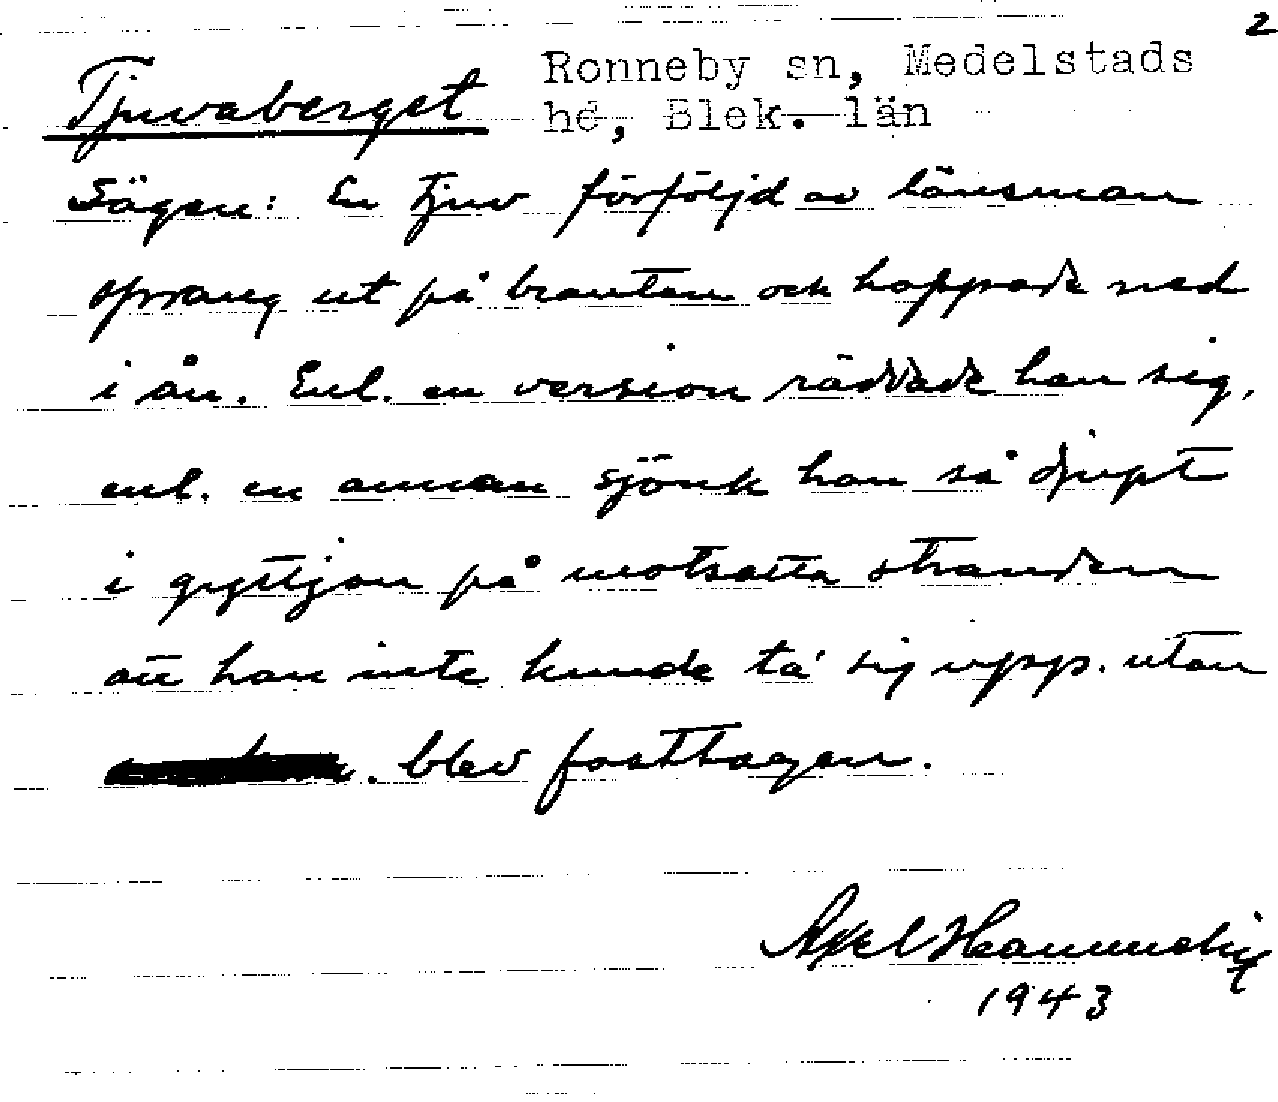 2
Tjuvaberget Ronneby sn, Medelstads
hd, Blek. län
Sägen: En tjuv förföljd av länsman
sprang ut på branten och hoppade ned
i ån. Enl. en version räddade han sig,
enl. en annan sjönk han så djupt
i gyttjan på motsatta stranden
att han inte kunde ta sig upp. utan
blev fasttagen.
Axel
1943